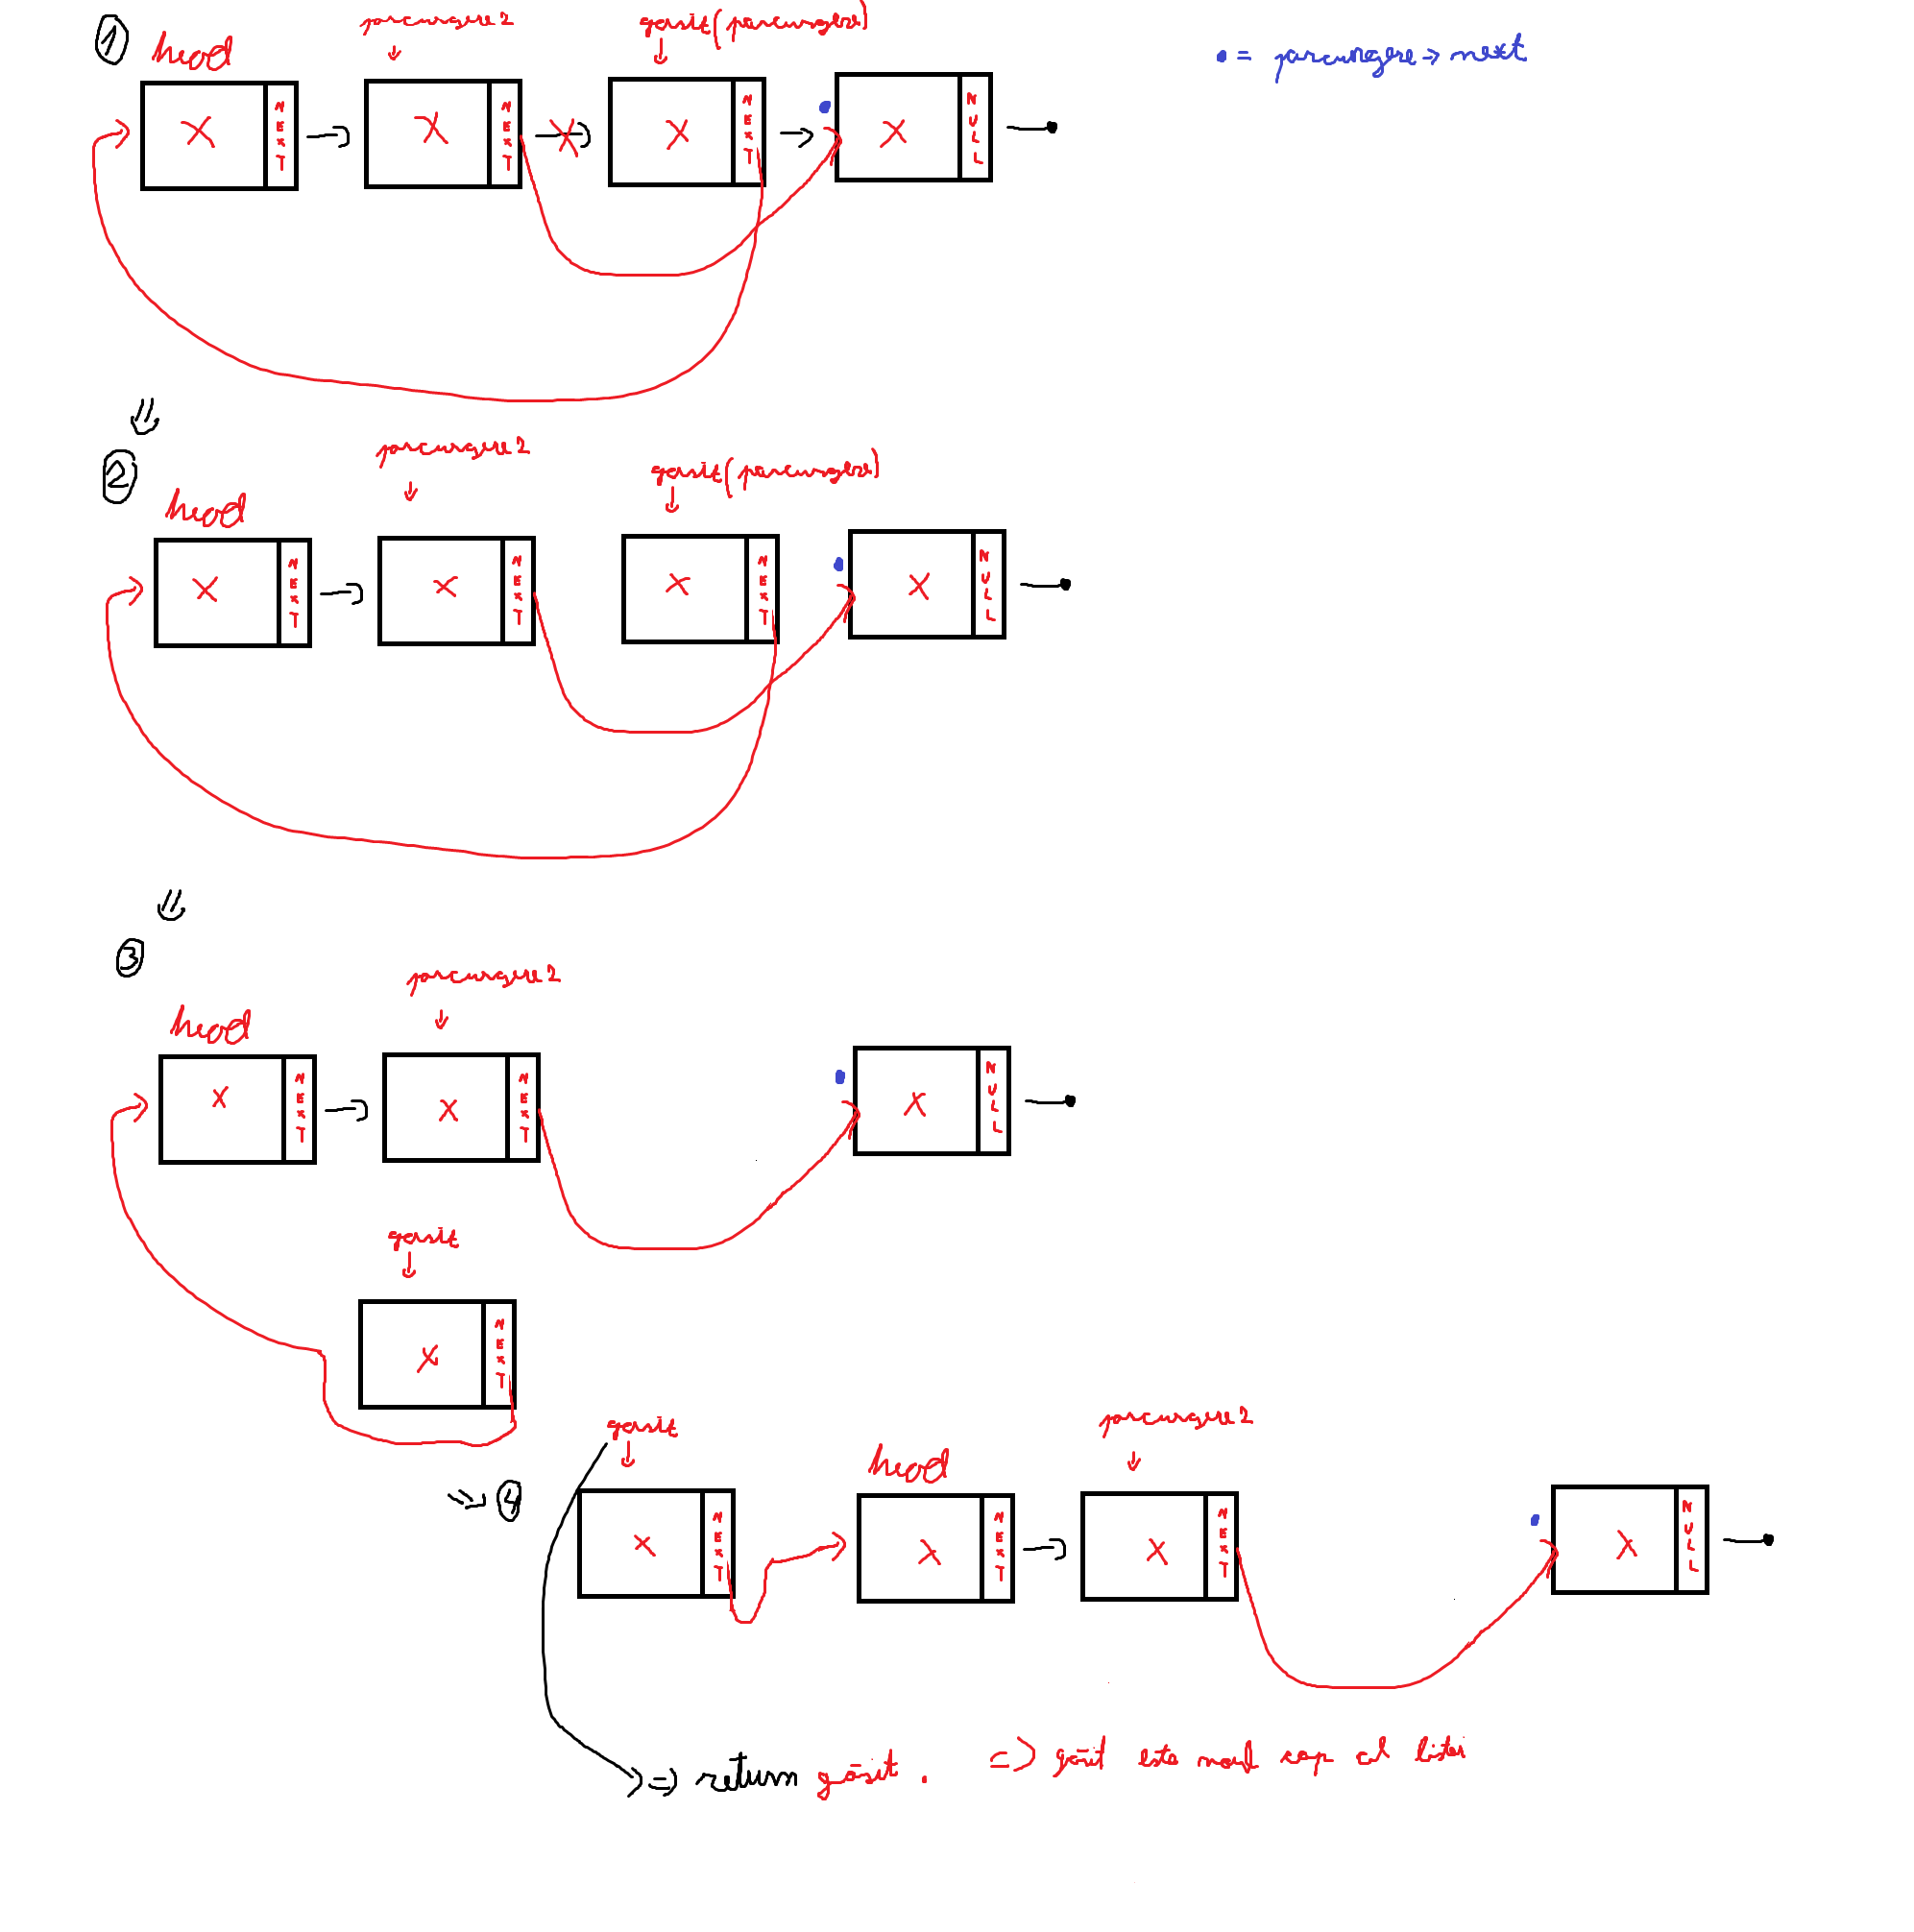 1
parcurgere2
gasit(parcurgere)
head
• = parcurgere → next
X NEXT X NEXT X NEXT X NULL
2
parcurgere2
gasit(parcurgere)
head
X NEXT X NEXT X NEXT X NULL
3
parcurgere2
head
X NEXT X NEXT X NULL
gasit
X NEXT
gasit
parcurgere2
head
=> 4
X NEXT X NEXT X NEXT X NULL
=> return găsit. => găsit este noul cap al listei